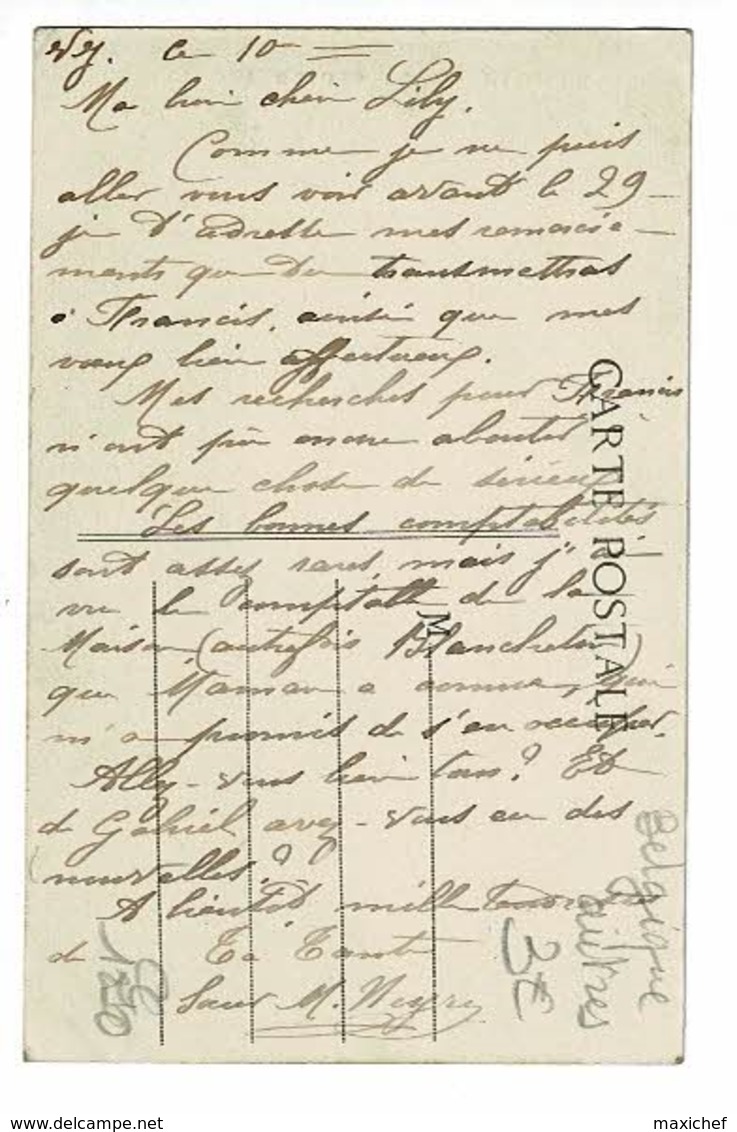 ce 10
Ma bien chère Lily,
Comme je ne puis
aller vous voir avant le 29
je t'adresse mes remercie-
ments que tu transmettras
à Francis, ainsi que mes
vœux bien affectueux.
Mes recherches pour Francis
n'ont pu encore aboutir
quelque chose de sérieux
Les bonnes comptabilités
sont assez rares mais j'ai
vu le comptable de la
Maison (autrefois Blanchetier)
que Maman a connue, qui
m'a promis de s'en occuper.
Allez-vous bien tous? Et
de Gabriel avez-vous eu des
nouvelles?
A bientôt mille tendresses
de Ta Tante
Sœur M.
CARTE POSTALE
M
Belgique
autres
3€
120
www.delcampe.net
maxichef